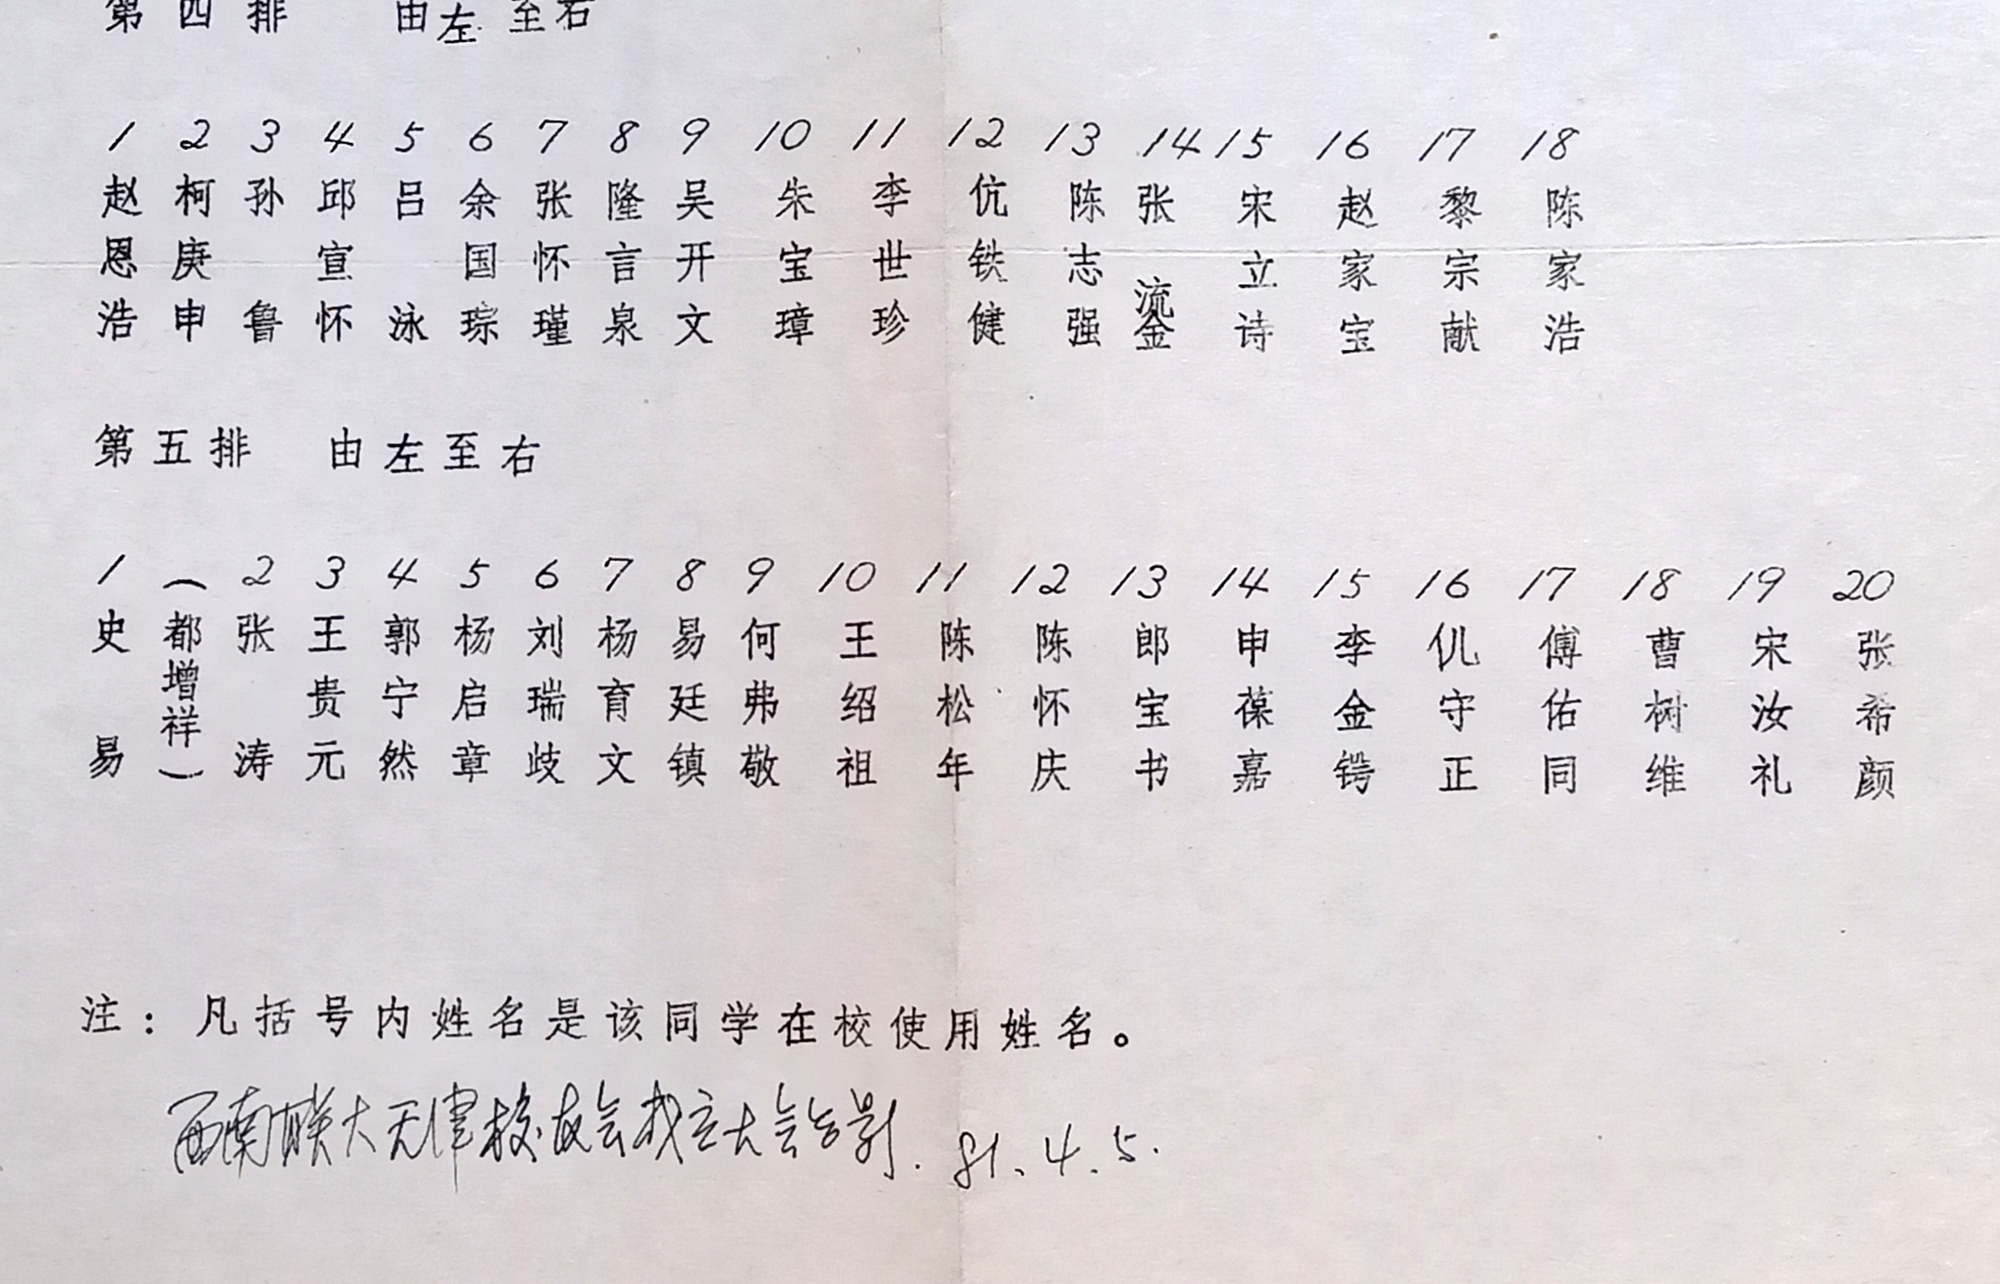 第四排 由左至右
1 2 3 4 5 6 7 8 9 10 11 12 13 14 15 16 17 18
赵恩浩
柯庚申
孙鲁
邱宣怀
吕泳
余国琮
张怀瑾
隆言泉
吴开文
朱宝璋
李世珍
伉铁健
陈志强
张鎏
宋立诗
赵家宝
黎宗献
陈家浩
第五排 由左至右
1 2 3 4 5 6 7 8 9 10 11 12 13 14 15 16 17 18 19 20
史易
(都增祥)
张涛
王贵元
郭宁然
杨启章
刘瑞歧
杨育文
易廷镇
何弗敬
王绍祖
陈松年
陈怀庆
郎宝书
申葆嘉
李金锷
仉守正
傅佑同
曹树维
宋汝礼
张希颜
注：凡括号内姓名是该同学在校使用姓名。
西南联大天津校友会成立大会合影. 81.4.5.